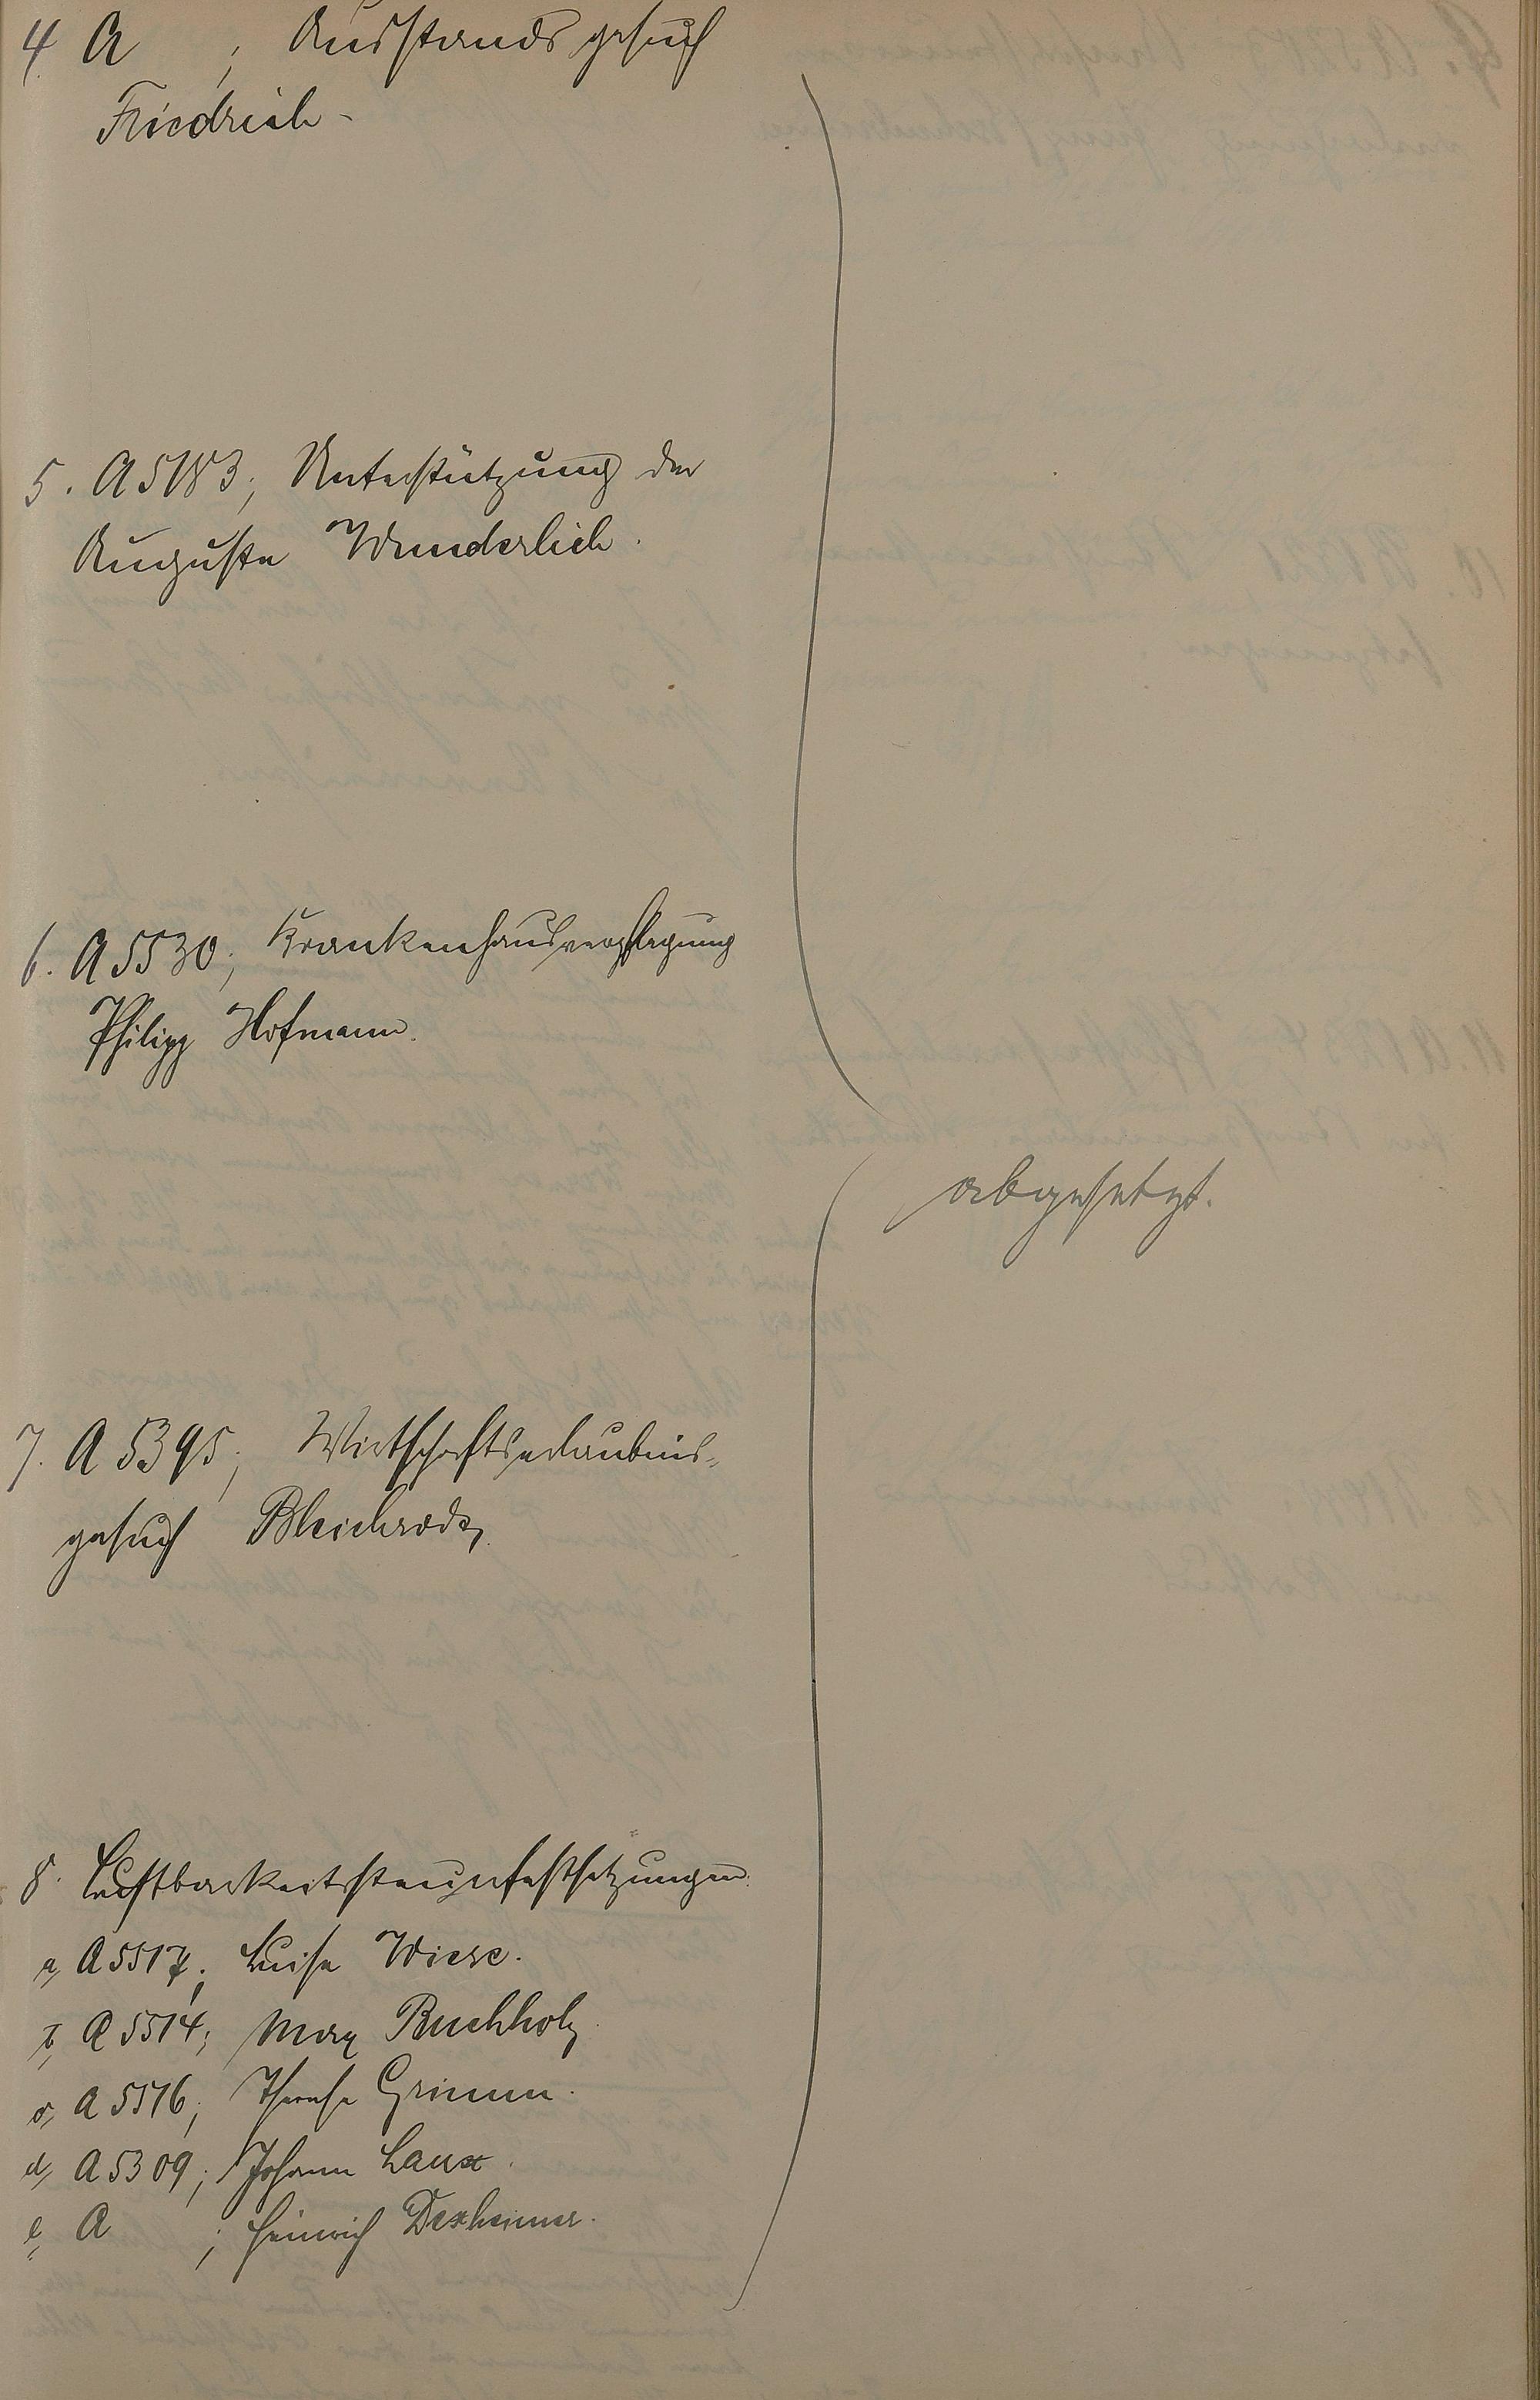 4 A ; Ausstandsgesuch
Friedrich -
5. A 5183; Unterstützung der
Auguste Wunderlich.
6. A 5530; Krankenhausverpflegung
Philipp Hofmann.
abgesetzt.
7. A 5395; Wirtschaftserlaubnis-
gesuch Bleicherode
8. Lustbarkeitssteuerfestsetzungen.
a, A 5517; Luise Wiese.
b, A 5514; Max Buchholz
c, A 5516; Therese Grimm.
d, A 5309; Johann Laux.
e, A ; Heinrich Dexheimer.